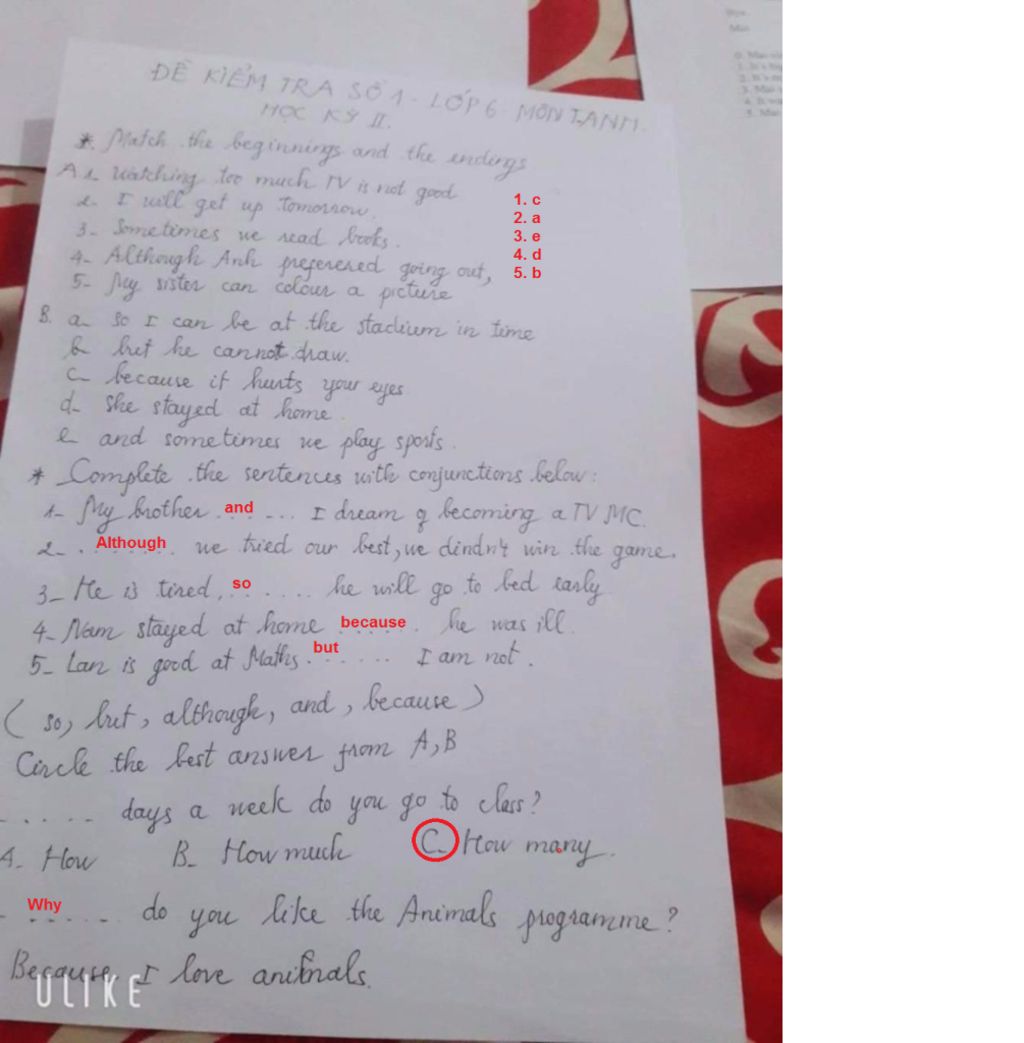 ĐỀ KIỂM TRA SỐ 1 - LỚP 6 - MÔN T.ANH.
HỌC KỲ II.
*. Match the beginnings and the endings
A 1. Watching too much TV is not good
2- I will get up tomorrow.
3- Sometimes we read books.
4- Although Anh prefereed going out,
5- My sister can colour a picture
1. c
2. a
3. e
4. d
5. b
B. a- so I can be at the stadium in time
b- but he cannot draw.
c- because it hurts your eyes
d- she stayed at home.
e- and sometimes we play sports.
* Complete the sentences with conjunctions below:
1- My brother and ... I dream of becoming a TV MC.
2- Although we tried our best, we dindn't win the game.
3- He is tired, so .... he will go to bed early
4- Nam stayed at home because he was ill.
5- Lan is good at Maths but ..... I am not.
(so, but, although, and, because)
Circle the best answer from A, B
..... days a week do you go to class?
A. How B- How much C- How many.
- Why ..... do you like the Animals programme?
Because I love animals.
ULIKE